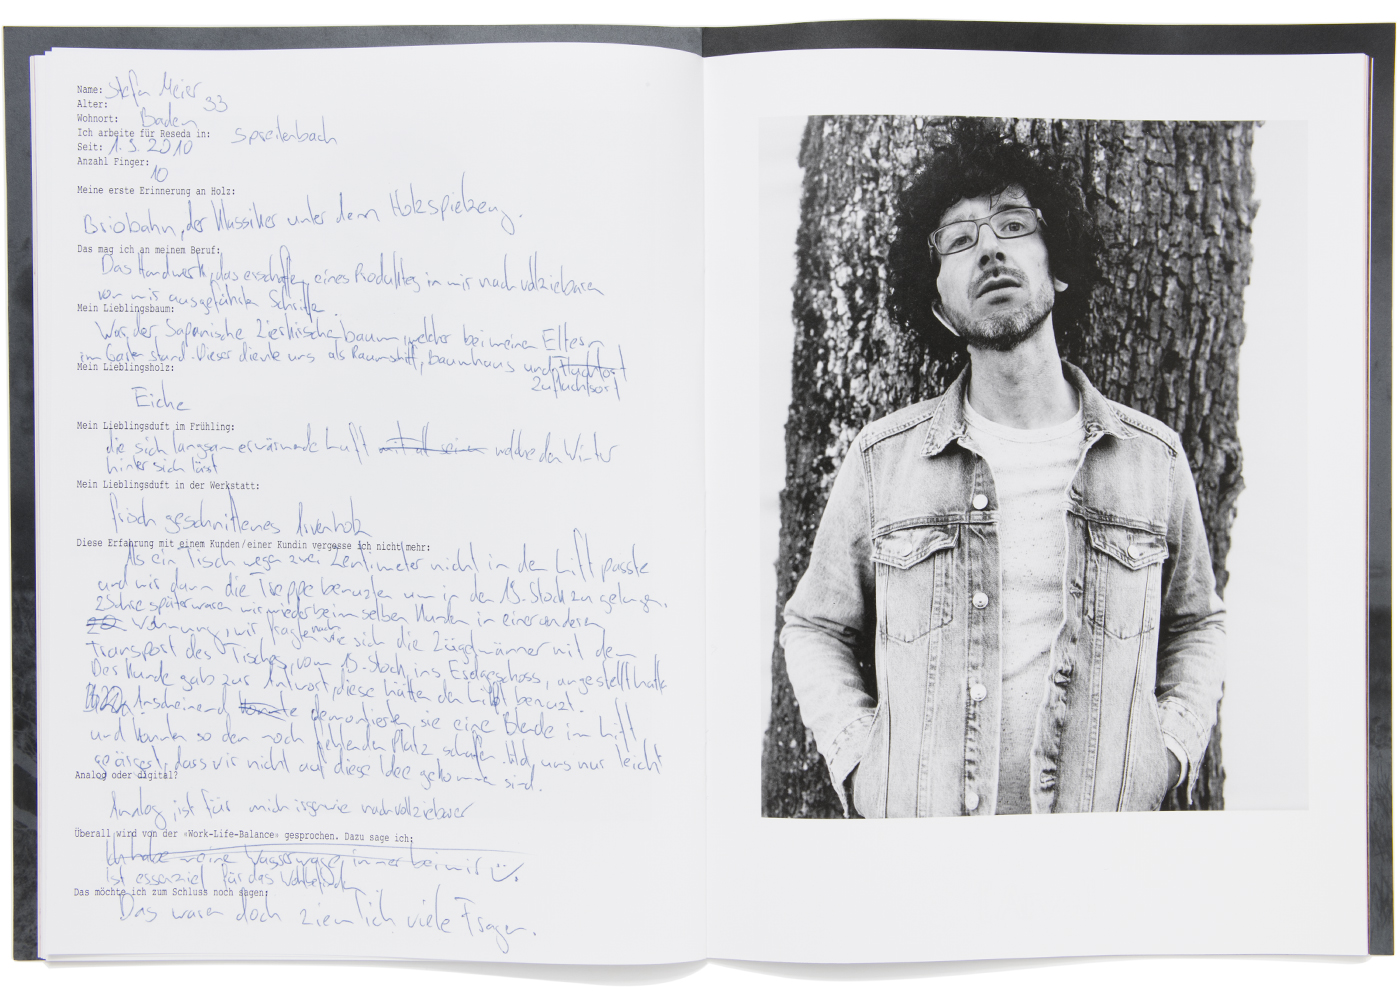 Name: Stefan Meier
Alter: 33
Wohnort: Baden
Ich arbeite für Reseda in: Spreitenbach
Seit: 1.3.2010
Anzahl Finger:
10
Meine erste Erinnerung an Holz:
Briobahn, der Klassiker unter dem Holzspielzeug.
Das mag ich an meinem Beruf:
Das Handwerk, das erschaffen eines Produktes in mir nachvollziebaren
von mir ausgeführten Schritte.
Mein Lieblingsbaum:
War, der Japanische Zierkirschebaum, welcher bei meinen Eltern
im Garten stand. Dieser diente uns als Raumschiff, Baumhaus und
Zufluchtsort
Mein Lieblingsholz:
Eiche
Mein Lieblingsduft im Frühling:
die sich langsam erwärmende Luft welche den Winter
hinter sich lässt
Mein Lieblingsduft in der Werkstatt:
frisch geschnittenes Arvenholz
Diese Erfahrung mit einem Kunden/einer Kundin vergesse ich nicht mehr:
Als ein Tisch wegen zwei Zentimeter nicht in den Lift passte
und wir dann die Treppe benuzten um in den 15. Stock zu gelangen.
2 Jahre später waren wir wieder beim selben Kunden in einer anderen
Wohnung, wir fragen nach wie sich die Zügelmänner mit dem
Transport des Tisches, vom 15. Stock ins Erdgeschoss, angestellt hatte
Der Kunde gab zur Antwort, diese hätten den Lift benuzt.
Anscheinend demontierten sie eine Blende im Lift
und konnten so den noch fehlenden Platz schaffen. uns nur leicht
geärgert, dass wir nicht auf diese Idee gekommen sind.
Analog oder digital?
Analog, ist für mich irgenwie nachvollziebarer
Überall wird von der «Work-Life-Balance» gesprochen. Dazu sage ich:
Ich habe meine Wasserwage immer bei mir
Ist essenziel für das Wohlbefinden
Das möchte ich zum Schluss noch sagen:
Das waren doch ziemlich viele Fragen.